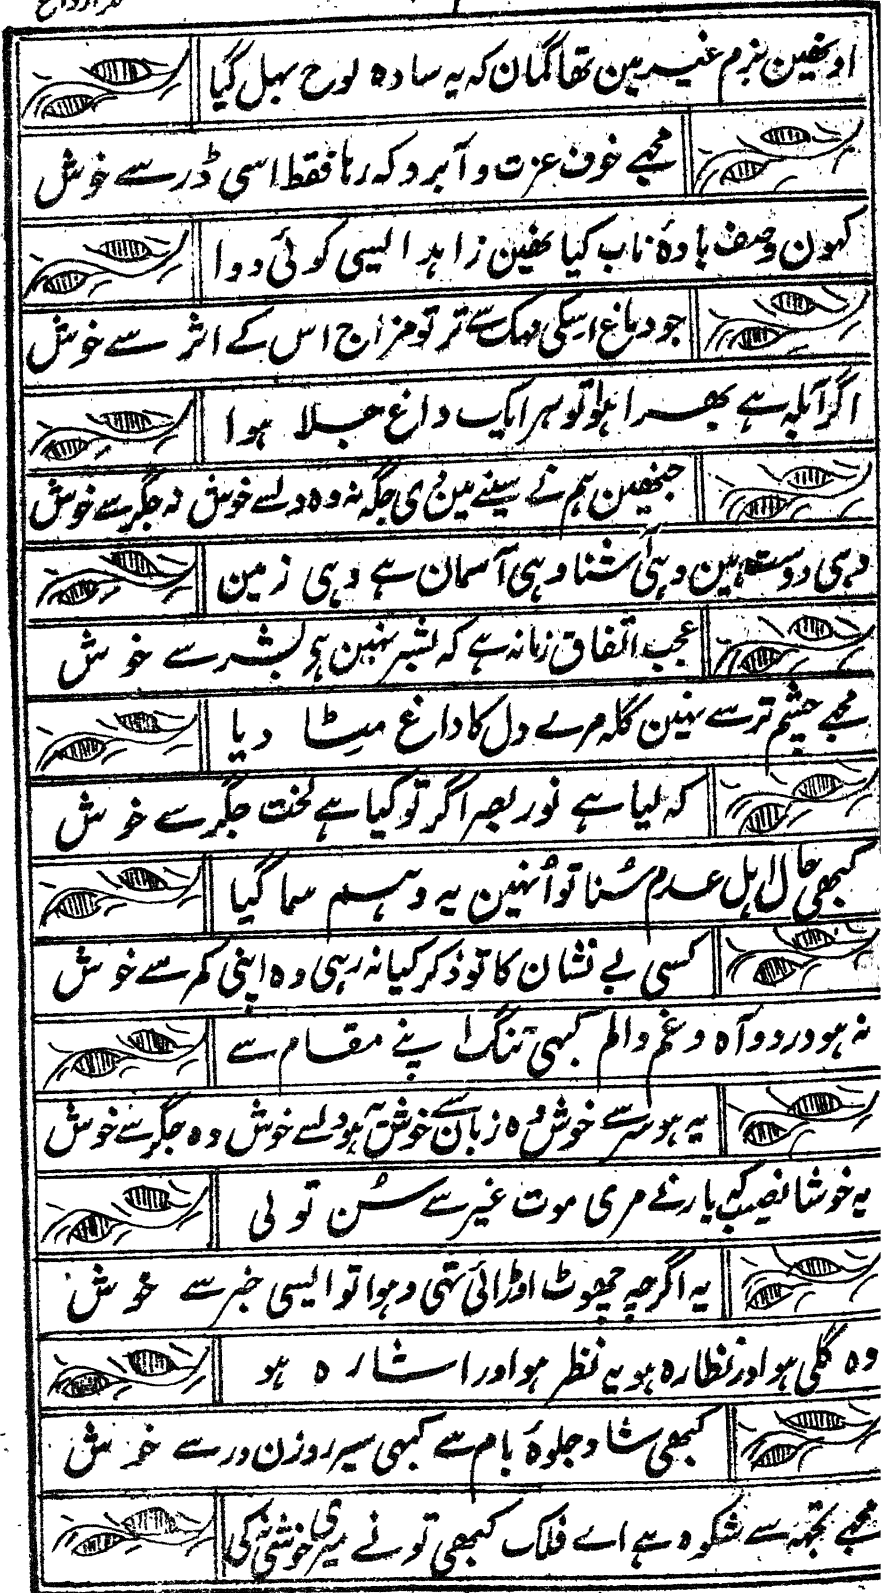 اونھین بزم غیر مین تھا گمان کہ یہ سادہ لوح بہل گیا
مجھے خوف عزت و آبرو کہ رہا فقط اسی ڈر سے خوش
کہون وصف بادۂ ناب کیا نھین زاہدا ایسی کوئی دوا
جو دماغ اسکی مہک سے تر تو مزاج اس کے اثر سے خوش
اگر آبلہ ہے بھرا ہوا تو ہر ایک داغ جلا ہوا
جنھین ہم نے سینے مین دی جگہ نہ وہ دلسے خوش نہ جگر سے خوش
وہی دوست ہین وہی آشنا وہی آسمان ہے وہی زمین
عجب اتفاق زمانہ ہے کہ بشر نہین ہی بشر سے خوش
مجھے چشم تر سے نہین گلہ مرے دل کا داغ مٹا دیا
کہ لیا ہے نور بصر اگر تو گیا ہے لخت جگر سے خوش
کبھی حال اہل عدم سُنا تو اُنہین یہ وہم سما گیا
کسی بے نشان کا تو ذکر کیا نہ رہی وہ اپنی کمر سے خوش
نہ ہو درد و آہ و غم و الم کبہی تنگ اپنے مقام سے
یہ ہو سر سے خوش وہ زبان سے خوش یہ ہو دلسے خوش وہ جگر سے خوش
یہ خوشا نصیب کہ یار نے مری موت غیر سے سُن تو لی
یہ اگرچہ جھوٹ اوڑائی تہی وہ ہوا تو ایسی خبر سے خوش
وہ گلی ہو اور نظارہ ہو یہ نظر ہو اور اشارہ ہو
کبھی شاد جلوۂ بام سے کبہی سیر روزن در سے خوش
مجھے تجہہ سے شکوہ ہے اے فلک کبھی تو نے میری خوشی نہ کی